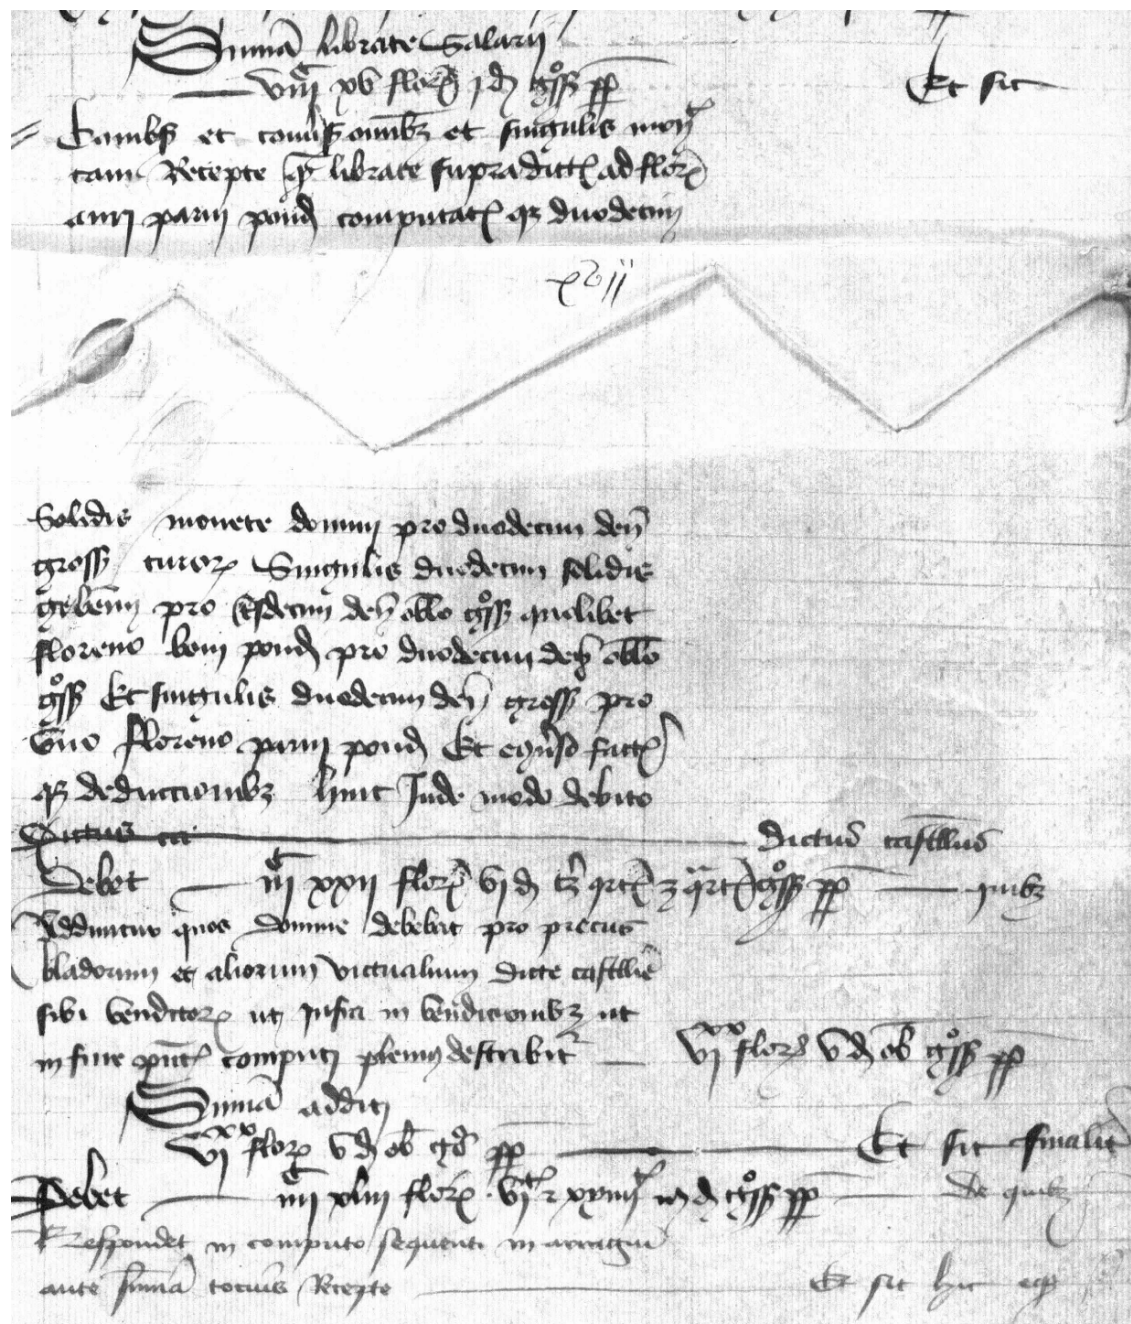 Summa librate Salarii
viii^c xv flor j d gross pp
Et sic
Cambiis et conversis omnibz et singulis mon
tam Recepte q librate supradict ad flor
auri parvi pond computat qz duodecim
xvii
Solidis monete domini pro duodecim den
gross turor Singulis duodecim solidis
gebenn pro sexdecim den obolo gross quolibet
floreno boni pond pro duodecim den obolo
gross Et singulis duodecim den gross pro
uno floreno parvi pond Et equiso fact
qz deduccionibz hinc Inde modo debito
Dictus cas
Dictus castellus
Debet iii^c xxii flor vi d t qrt z qrt gross pp quibz
Adduntur quos domine debebat pro precus
bladorum et aliorum victualium dicte castellie
sibi venditor ut infra in vendicionibz ut
in fine pnt computi plenius describit
vi^xx flor v d ob gross pp
Summa additi
vi^xx flor v d ob gr pp Et sic finalit
Debet iiii^c xliii flor pp de quibz
Respondet in computo sequenti in arreragiis
ante summa tocius Recepte Et sic hic eqz